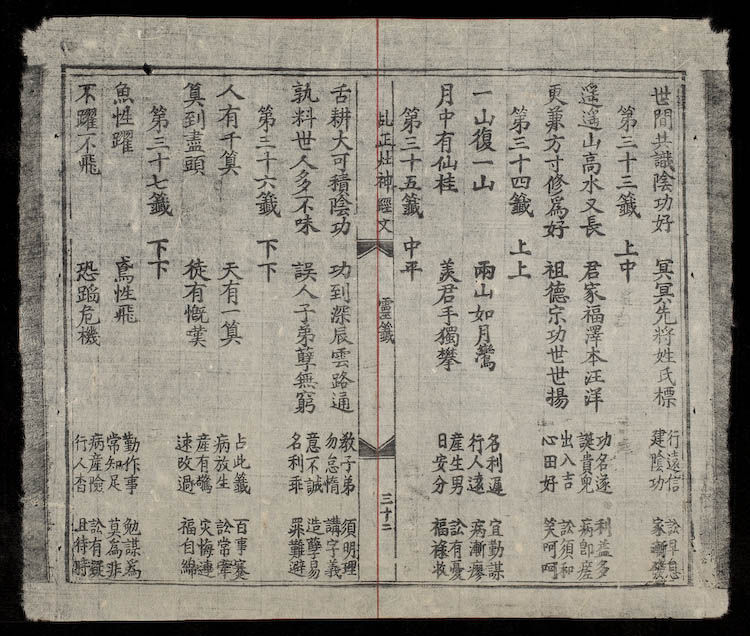 世間共識陰功好 冥冥先將姓氏標 行遠信 訟早息
建陰功 家漸發
第三十三籤 上中
遥遥山高水又長 君家福澤本汪洋 功名遂 利益多
誕貴兒 病即瘥
更兼方寸修為好 祖德宗功世世揚 出入吉 訟須和
心田好 笑呵呵
第三十四籤 上上
一山復一山 兩山如月鸞 名利遲 宜勤謀
行人遠 病漸瘳
月中有仙桂 羨君手獨攀 産生男 訟有憂
日安分 福祿收
第三十五籤 中平
乩正灶神經文 靈籤 三十二
舌耕大可積陰功 功到深辰雲路通 教子弟 須明理
勿怠惰 講字義
孰料世人多不味 誤人子弟孽無窮 意不誠 造孽易
名利乖 罪難避
第三十六籤 下下
人有千算 天有一算 占此籤 百事蹇
病放生 訟常牽
算到盡頭 徒有慨嘆 産有驚 災悔連
速改過 福自綿
第三十七籤 下下
魚性躍 鳶性飛 勤作事 勉謀為
常知足 莫為非
不躍不飛 恐蹈危機 病産險 訟有疑
行人杳 且待時